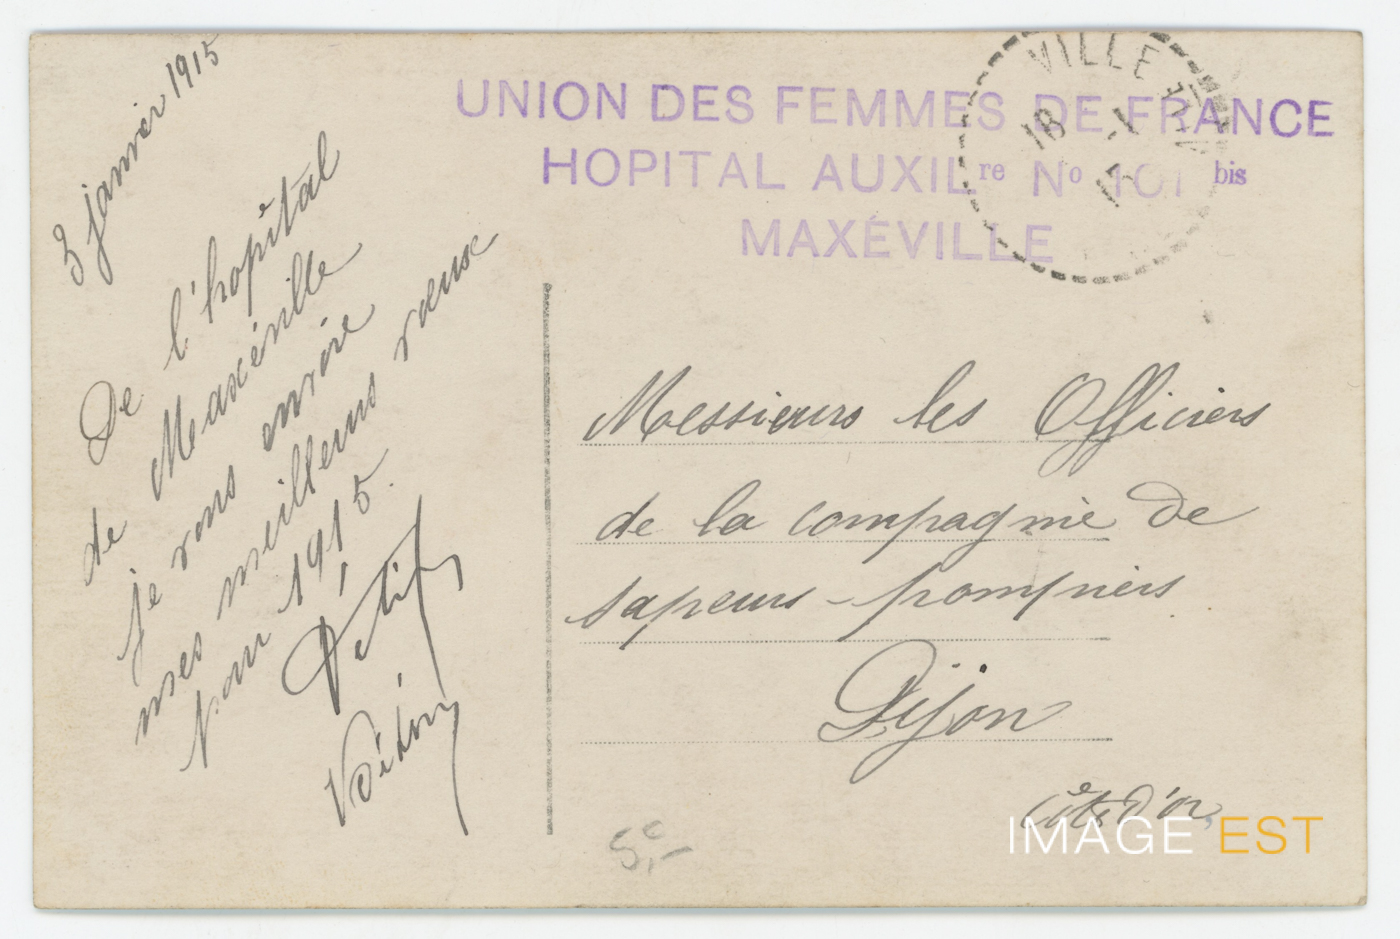 3 janvier 1915
De l'hopital
de Maxéville
je vous envoie
mes meilleurs vœux
pour 1915.
Petit
UNION DES FEMMES DE FRANCE
HOPITAL AUXILre No 101 bis
MAXÉVILLE
VILLE
18 -1 15
Messieurs les Officiers
de la compagnie de
sapeurs-pompiers
Dijon
Côte d'or
5,-
IMAGE EST